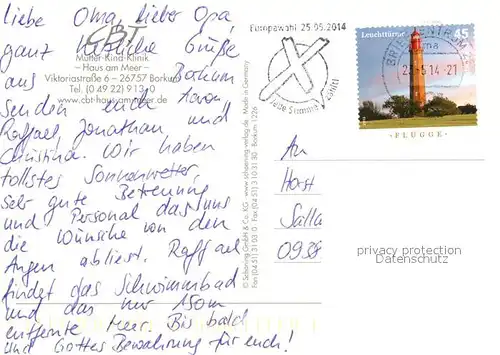 liebe Oma, lieber Opa
ganz herzliche Grüße
aus Borkum
senden euch Aaron
Raffael, Jonathan und
Christina. Wir haben
tollstes Sonnenwetter,
sehr gute Betreuung
und Personal das uns
die Wünsche von den
Augen abliest. Raffael
findet das Schwimmbad
und das nur 150m
entfernte Meer. Bis bald
und Gottes Bewahrung für euch!
CBT
Mutter-Kind-Klinik
– Haus am Meer –
Viktoriastraße 6 – 26757 Borkum
Tel. (0 49 22) 913-0
www.cbt-hausammeer.de
© Schöning GmbH & Co. KG · www.schoening-verlag.de · Made in Germany
Fon (04 51) 3 10 3-0 · Fax (04 51) 3 10 31 30 · Borkum 1226
Europawahl 25.05.2014
Jede Stimme zählt!
Leuchttürme 45
FLÜGGE
BRIEFZENTRUM
14-21
An
Horst
Salla
0938
privacy protection
Datenschutz